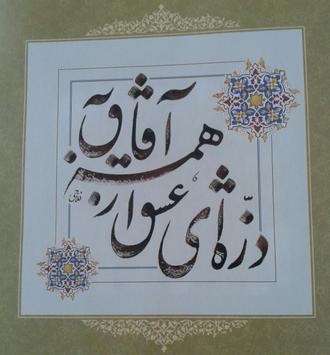 ذرّه‌ای عشق از
همه آفاق به